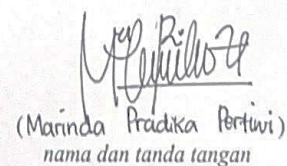 (Marinda Pradika Pertiwi)
nama dan tanda tangan